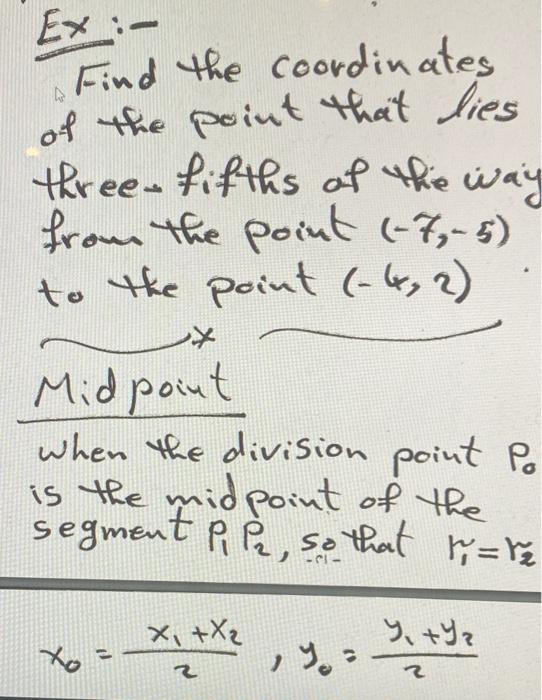 Ex :-
Find the coordinates
of the point that lies
three-fifths of the way
from the point (-7,-5)
to the point (-4, 2)
x
Midpoint
when the division point P₀
is the midpoint of the
segment P₁P₂, so that r₁=r₂
x₀ = x₁+x₂/2 , y₀ = y₁+y₂/2